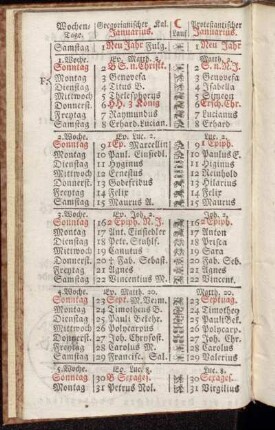 Wochen- Gregorianischer Kal. C Protestantischer
Tage. Januarius. Lauf Januarius.
Samstag 1 Neu Jahr Fulg. 1 Neu Jahr
1. Woche. Ev. Matth. 2. Matth. 2.
Sonntag 2 S. n. Christt. 2 S. n. N. J.
Montag 3 Genovefa 3 Genovefa
Dienstag 4 Titus B. 4 Isabella
Mittwoch 5 Thelesphorus 5 Simeon
Donnerst. 6 HH. 3 König 6 Ersch. Chr.
Freytag 7 Raymundus 7 Lucianus
Samstag 8 Erhard. Lucian. 8 Erhard
2. Woche. Ev. Luc. 2. Luc. 2.
Sonntag 9 1 Ep. Marcellin 9 1 Epiph.
Montag 10 Paul. Einsiedl. 10 Paulus E.
Dienstag 11 Hyginus 11 Higinus
Mittwoch 12 Ernestus 12 Reinhold
Donnerst. 13 Godefridus 13 Hilarius
Freytag 14 Felix 14 Felix
Samstag 15 Maurus A. 15 Maurus
3. Woche. Ev. Joh. 2. Joh. 2.
Sonntag 16 2 Epiph. N. J. 16 2 Epiph.
Montag 17 Ant. Einsiedler 17 Anton
Dienstag 18 Petr. Stuhlf. 18 Prisca
Mittwoch 19 Canutus 19 Sara
Donnerst. 20 † Fab. Sebast. 20 Fab. Seb.
Freytag 21 Agnes 21 Agnes
Samstag 22 Vincentius M. 22 Vincent.
4. Woche. Ev. Matth. 20. Matth. 20.
Sonntag 23 Sept. M. Verm. 23 Septuag.
Montag 24 Timotheus B. 24 Timothey
Dienstag 25 Pauli Bekehr. 25 Pauli Bek.
Mittwoch 26 Polycarpus 26 Polycarp.
Donnerst. 27 Joh. Chrysost. 27 Joh. Chr.
Freytag 28 Carolus M. 28 Carolus
Samstag 29 Francisc. Sal. 29 Valerius
5. Woche. Ev. Luc. 8. Luc. 8.
Sonntag 30 Sexages. 30 Sexages.
Montag 31 Petrus Nol. 31 Virgilius